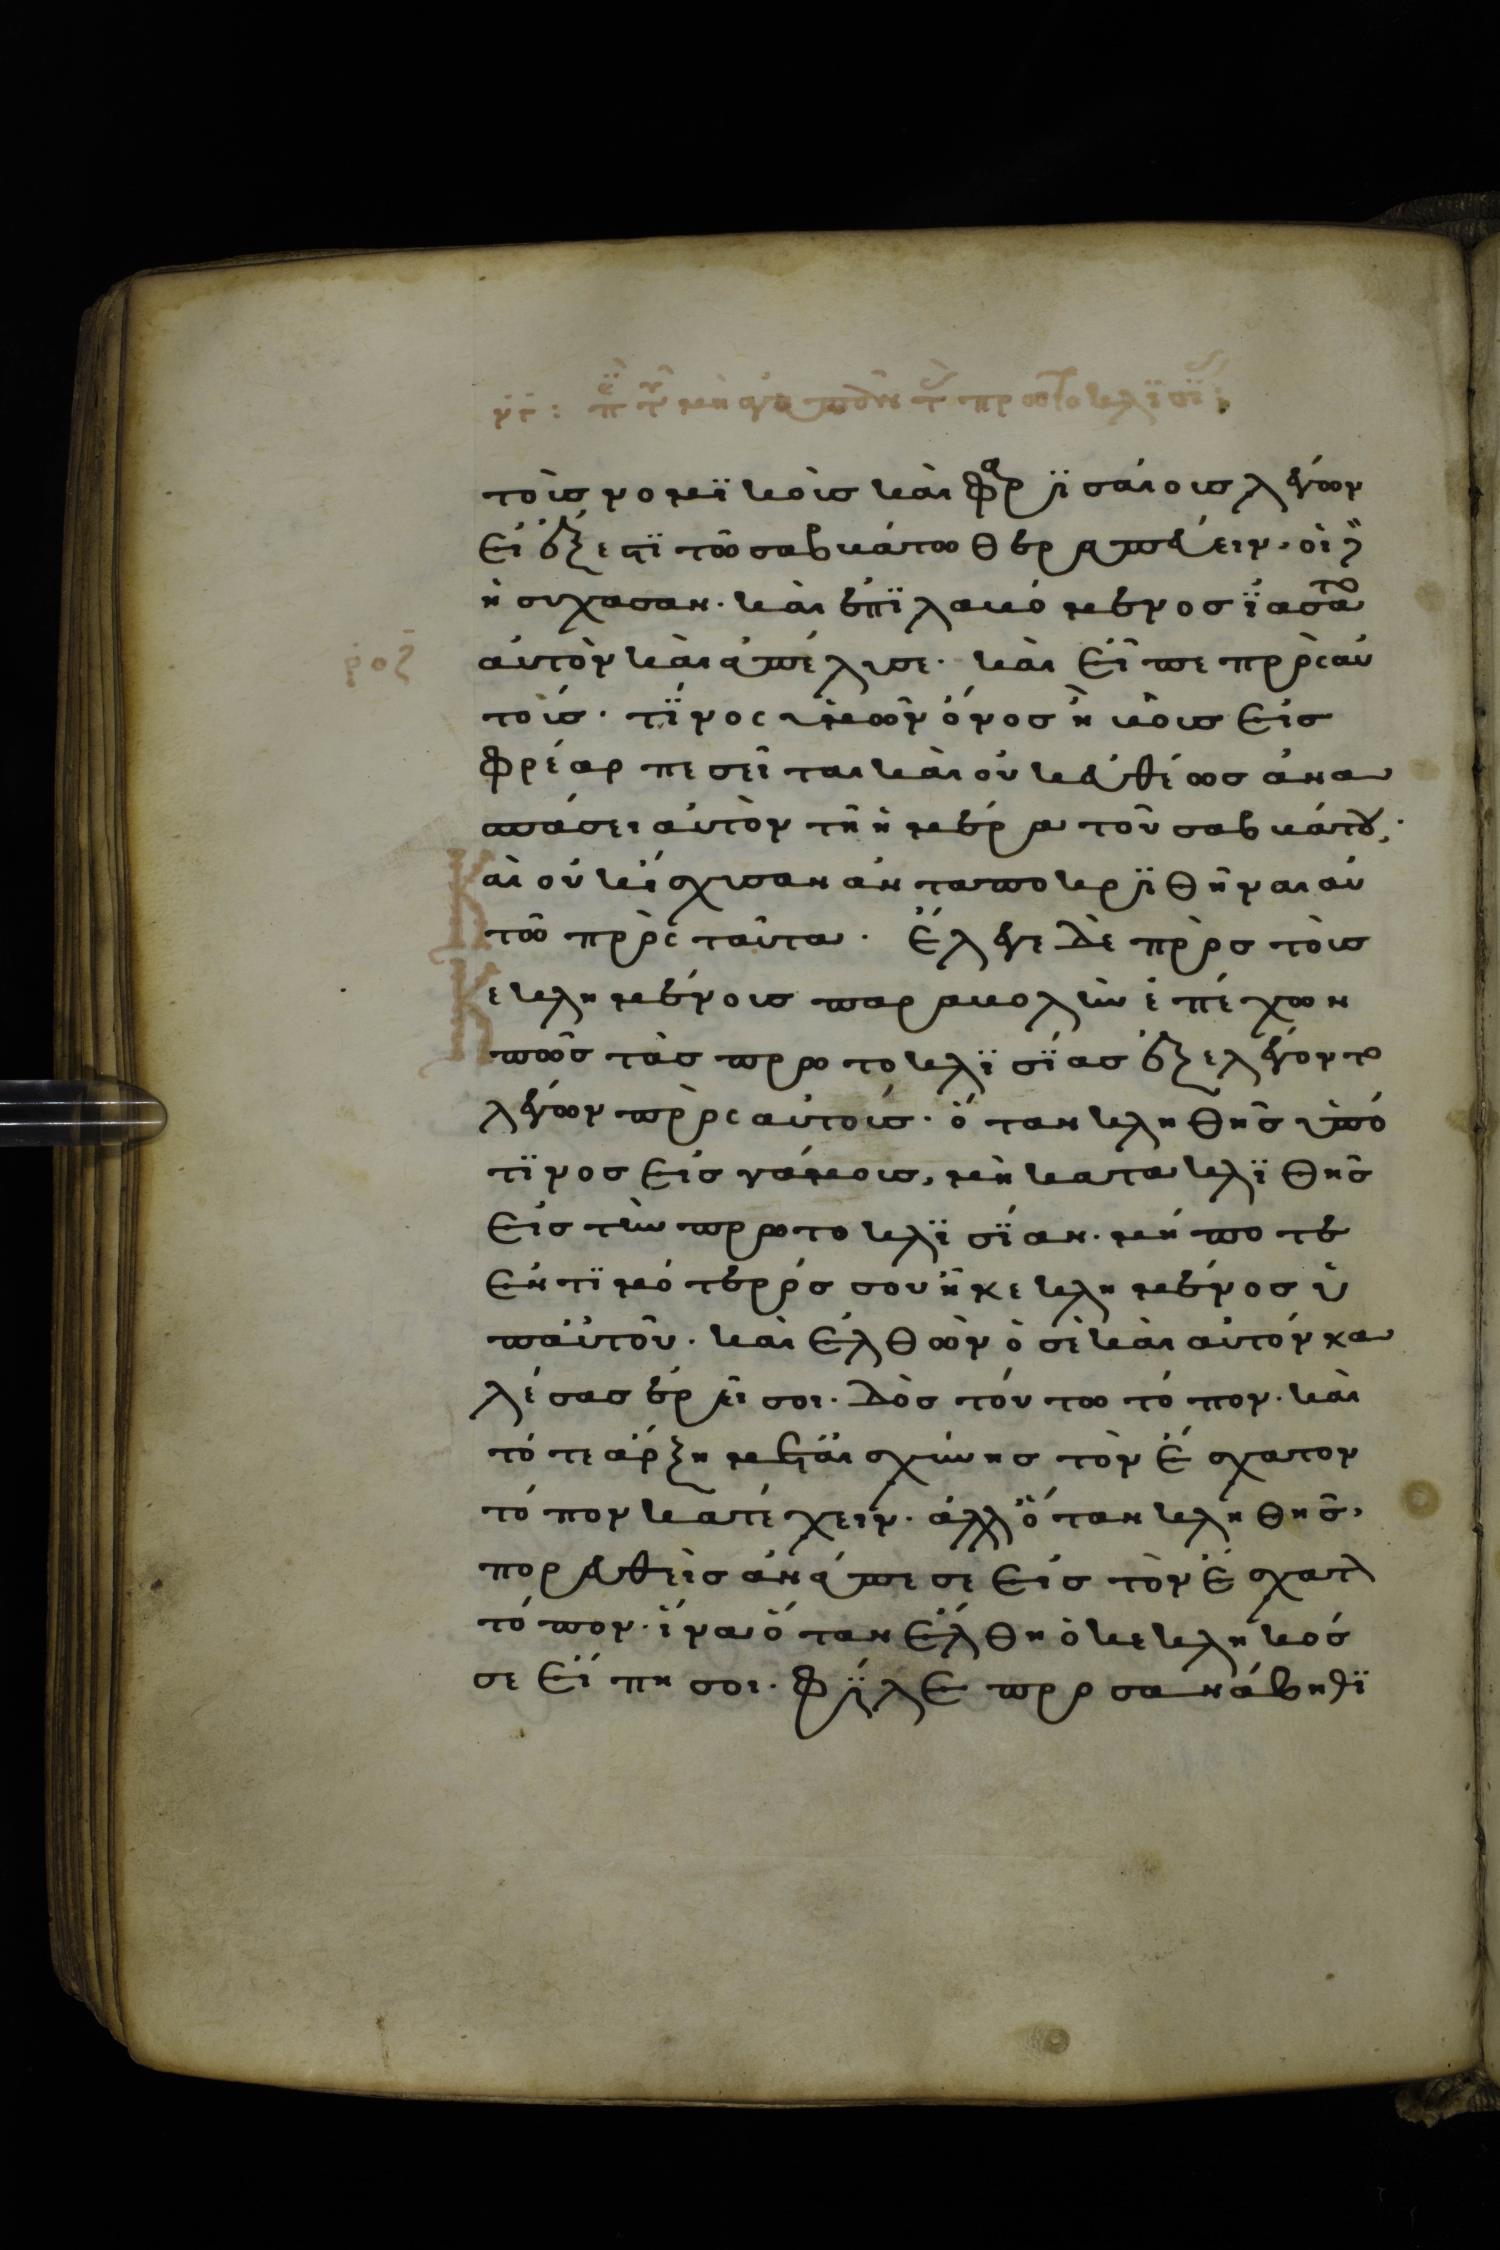 τοῖς νομϊκοῖς καὶ φαρϊσαίοις λέγων
εἰ ἔξεστϊ τῶ σαββάτω θεραπεύειν· οἱ δὲ
ἡσύχασαν· καὶ ἐπϊλαβόμενος ϊάσατο
ροζ αὐτὸν καὶ ἀπέλυσε· καὶ εἶπε πρὸς αὐ
τούς· τΐνος ὑμῶν ὄνος ἢ βοῦς εἰς
φρέαρ πεσεῖται καὶ οὐκ εὐθέως ἀνα
σπάσει αὐτὸν τῆ ἡμέρα τοῦ σαββάτου;
Καὶ οὐκ ΐσχυσαν ἀνταποκρϊθῆναι αὐ
τῶ πρὸς ταῦτα· Ἔλεγε δὲ πρὸς τοὺς
Κεκλημένους παραβολὴν ἐπέχων
πῶς τὰς πρωτοκλϊσΐας ἐξελέγοντο
λέγων πρὸς αὐτούς· ὅταν κληθῆς ὑπό
τϊνος εἰς γάμους, μὴ κατακλϊθῆς
εἰς τὴν πρωτοκλϊσΐαν· μήποτε
ἐντϊμότερός σου ἦ κεκλημένος ὑ
π' αὐτοῦ· καὶ ἐλθὼν ὁ σὲ καὶ αὐτόν κα
λέσας ἐρεῖ σοι· δὸς τούτω τόπον· καὶ
τότε ἄρξη μετ' αἰσχύνης τὸν ἔσχατον
τόπον κατέχειν· ἀλλ' ὅταν κληθῆς,
πορευθεὶς ἀνάπεσε εἰς τὸν ἔσχατον
τόπον· ἵνα ὅταν ἔλθη ὁ κεκληκός
σε εἴπη σοι· φΐλε προσανάβηθϊ